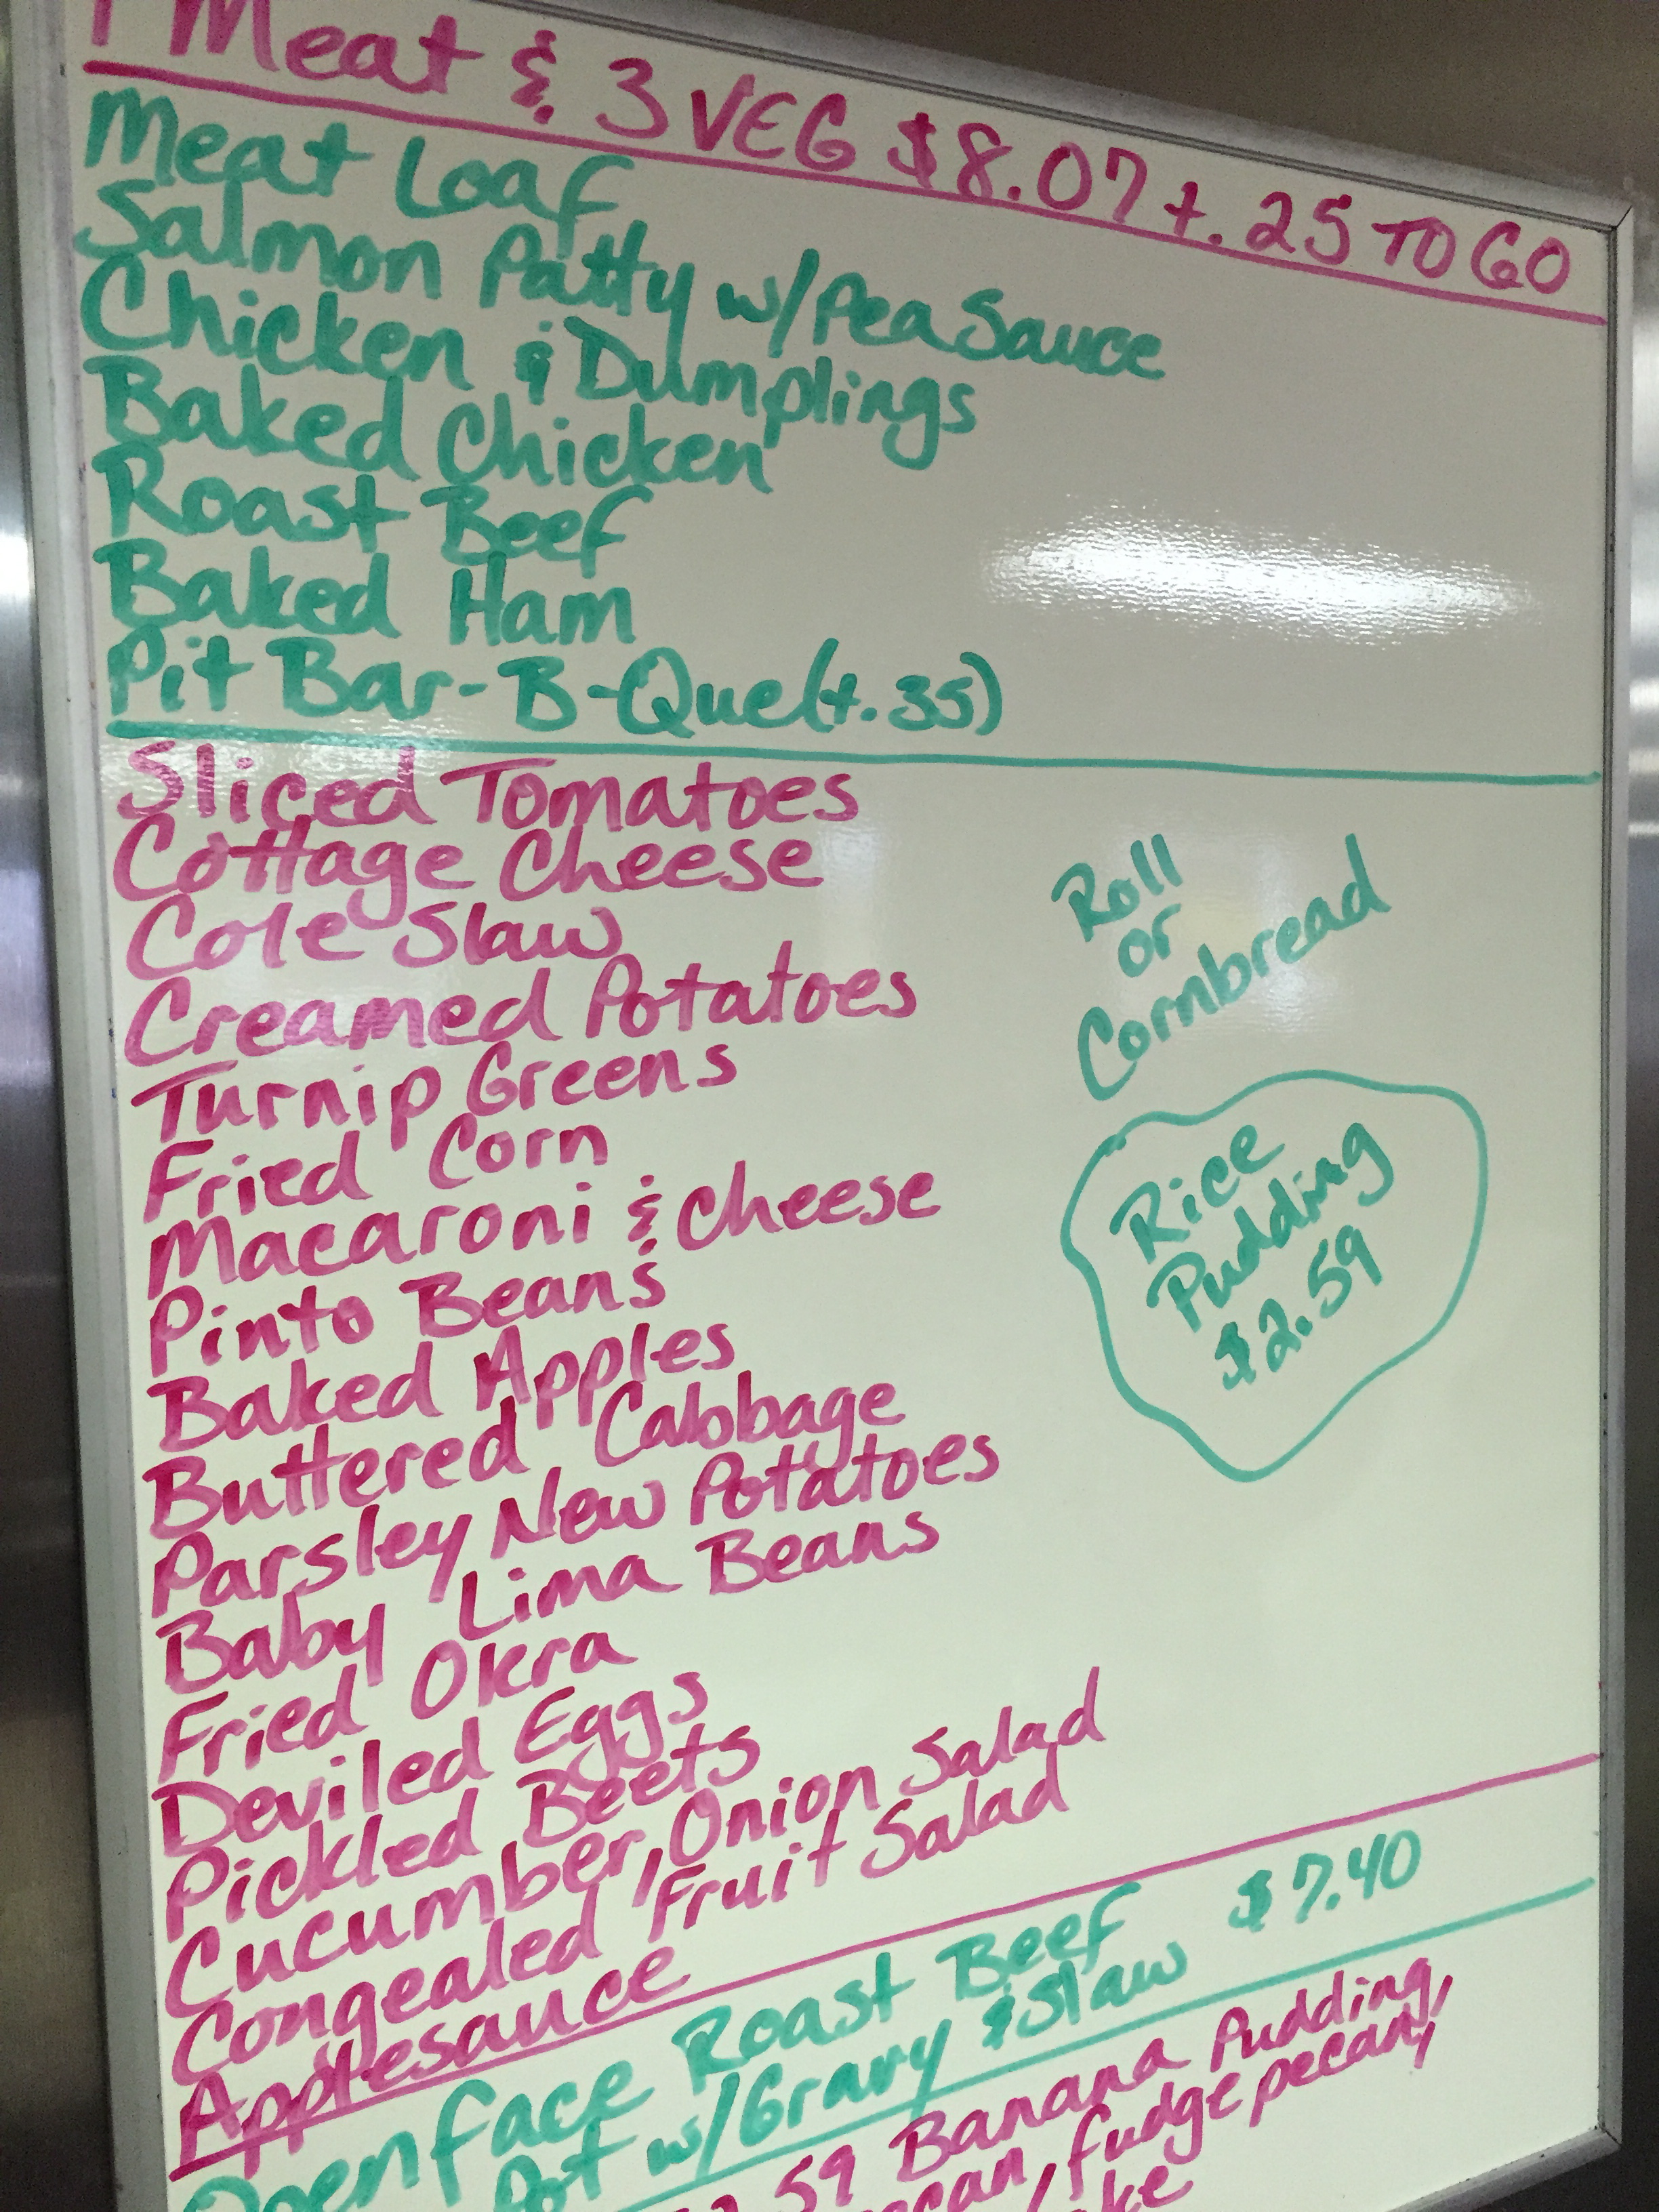 1 Meat & 3 VEG $8.07 +.25 TO GO
Meat Loaf
Salmon Patty w/Pea Sauce
Chicken & Dumplings
Baked Chicken
Roast Beef
Baked Ham
Pit Bar-B-Que (+.35)
Sliced Tomatoes
Cottage Cheese
Cole Slaw
Creamed Potatoes
Turnip Greens
Fried Corn
Macaroni & Cheese
Pinto Beans
Baked Apples
Buttered Cabbage
Parsley New Potatoes
Baby Lima Beans
Fried Okra
Deviled Eggs
Pickled Beets
Cucumber, Onion Salad
Congealed Fruit Salad
Applesauce
Roll
or
Cornbread
Rice
Pudding
$2.59
Openface Roast Beef $7.40
Pot w/Gravy & Slaw
59 Banana Pudding,
fudge pecan,